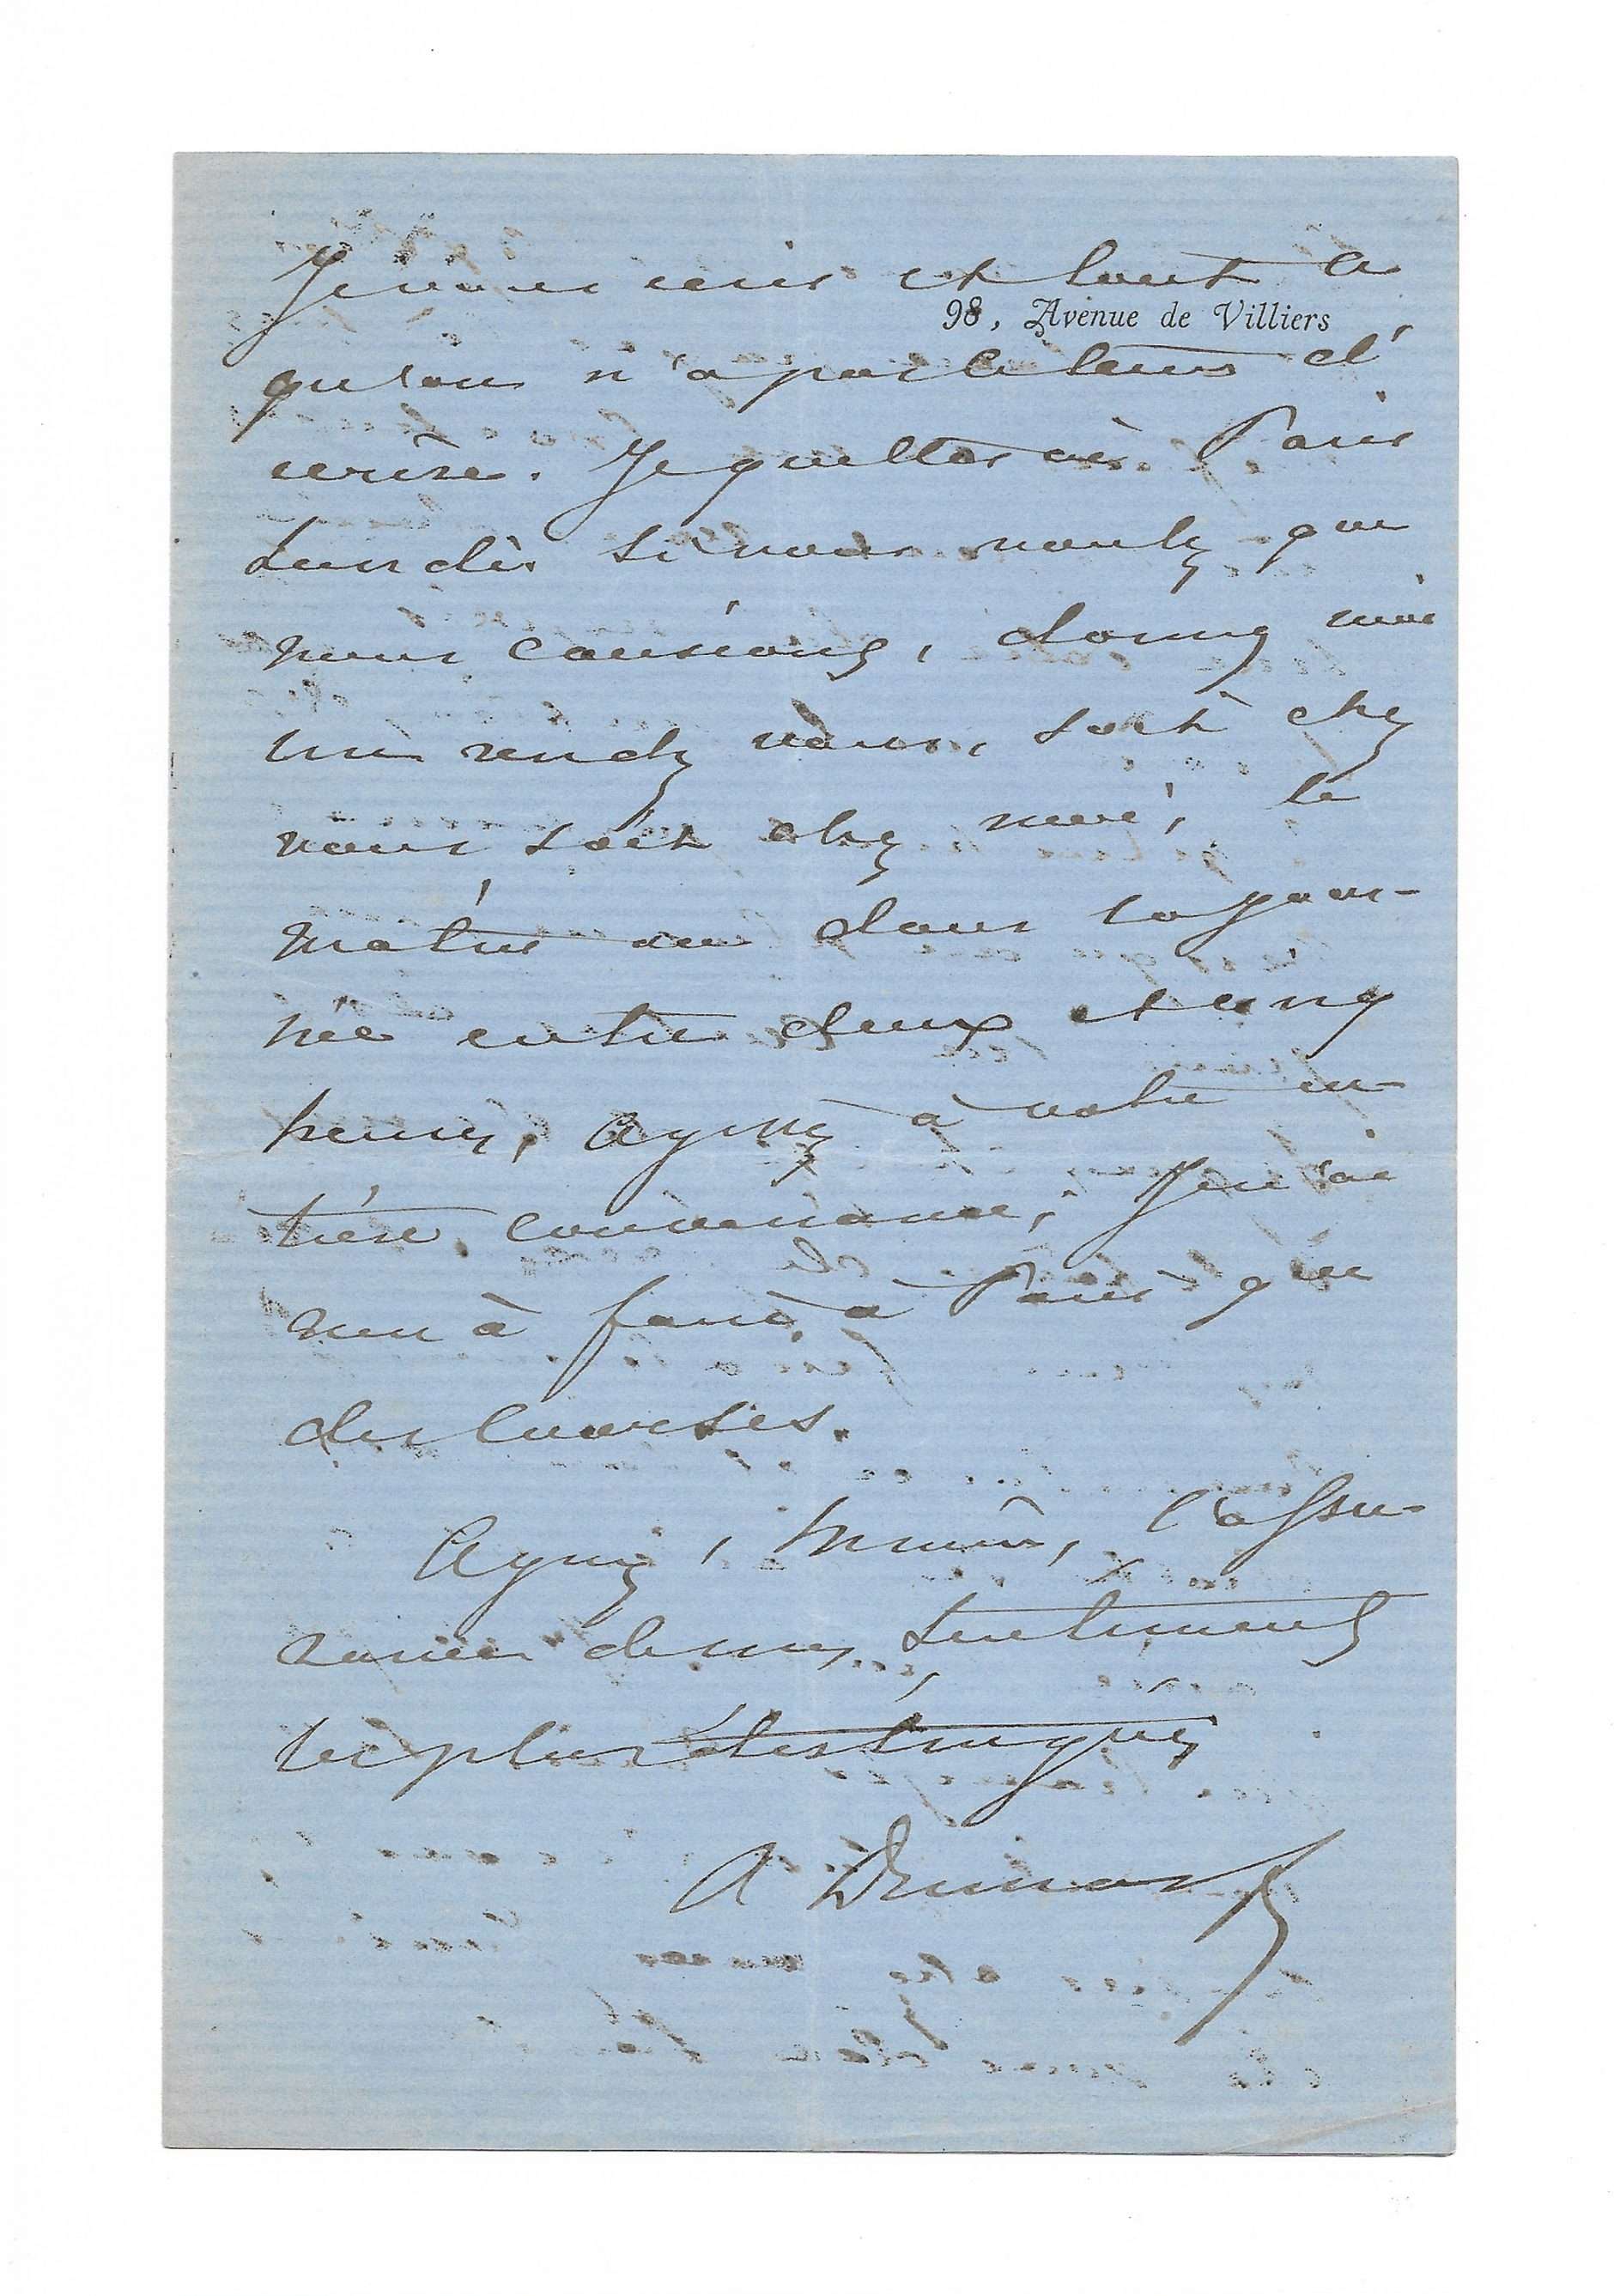 Je vous
et tout ce
98, Avenue de Villiers
qu'on n'a pas le tems d'
écrire. Je quitterai Paris
Lundi. Si vous voulez que
nous causions, donnez moi
un rendez vous, soit chez
vous soit chez moi, le
matin ou dans la jour-
née entre deux et cinq
heures, à votre en-
tière convenance; Je n'ai
rien à faire à Paris que
des courses.
Agréez, Monsieur, l'assu-
rance de mes sentiments
les plus distingués
A Dumas f